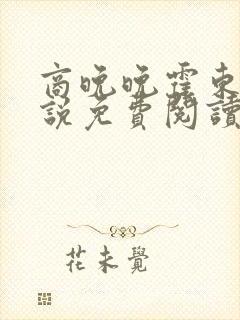 商晚晚霍東
說免費閱讀
花未覺